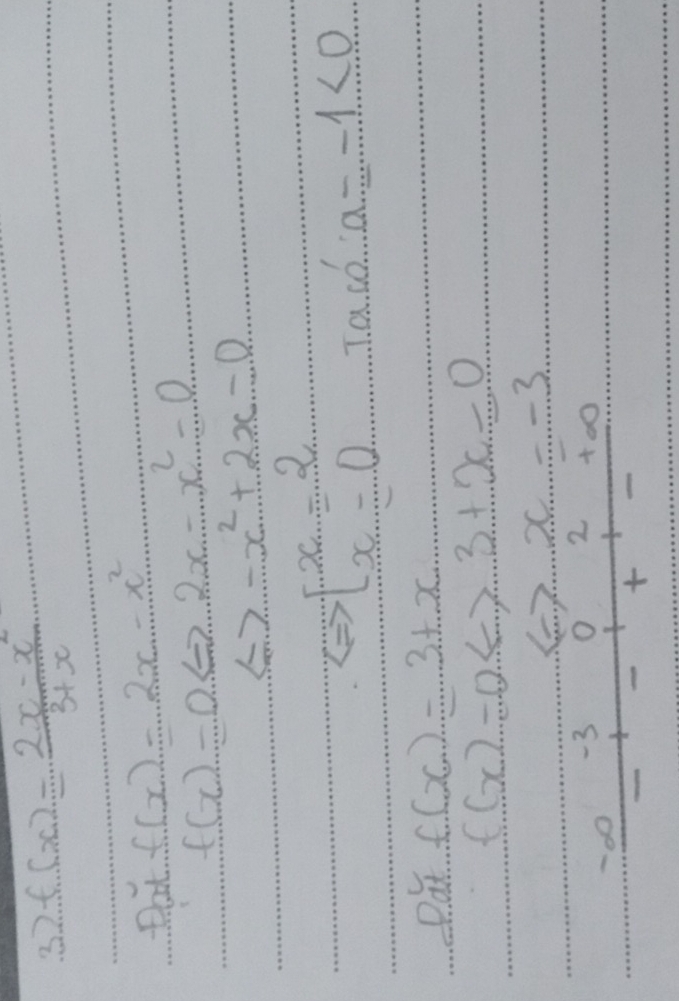 3) f(x) = 2x - x² / 3+x
Đặt f(x) = 2x - x²
f(x) = 0 <=> 2x - x² = 0
<=> -x² + 2x = 0
<=> [ x = 2
[ x = 0 Ta có : a = -1 < 0
Đặt f(x) = 3+x
f(x) = 0 <=> 3+x = 0
<=> x = -3
-∞ -3 0 2 +∞
- - + -